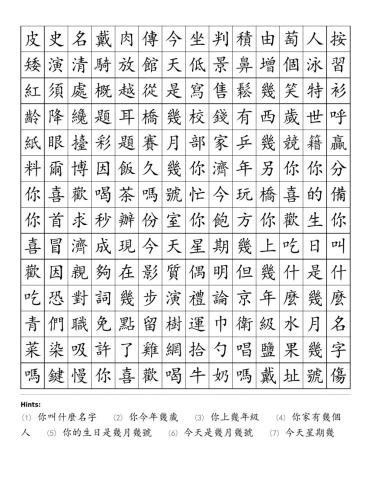 皮史名戴肉傳今坐判積由萄人按
矮演清騎放館天低景鼻增個泳習
紅須處概越從是寫售鬆幾笑特衫
齡降纔題耳橋幾校錢有西歲世呼
紙眼擡彩題賽月部家乒幾競籍贏
料爾博因飯久幾你濟年另你你分
你喜歡喝茶嗎號忙今玩橋喜的備
你首求秒辦份室你飽方你歡生你
喜冒濟成現今天星期幾上吃日叫
歡因親夠在影質偶明但幾什是什
吃恐對詞幾步演禮論京年麼幾麼
青們職免點留樹運巾衛級水月名
菜染吸許了雞網拾勺唱鹽果幾字
嗎鍵慢你喜歡喝牛奶嗎戴址號傷
Hints:
(1) 你叫什麼名字 (2) 你今年幾歲 (3) 你上幾年級 (4) 你家有幾個
人 (5) 你的生日是幾月幾號 (6) 今天是幾月幾號 (7) 今天星期幾